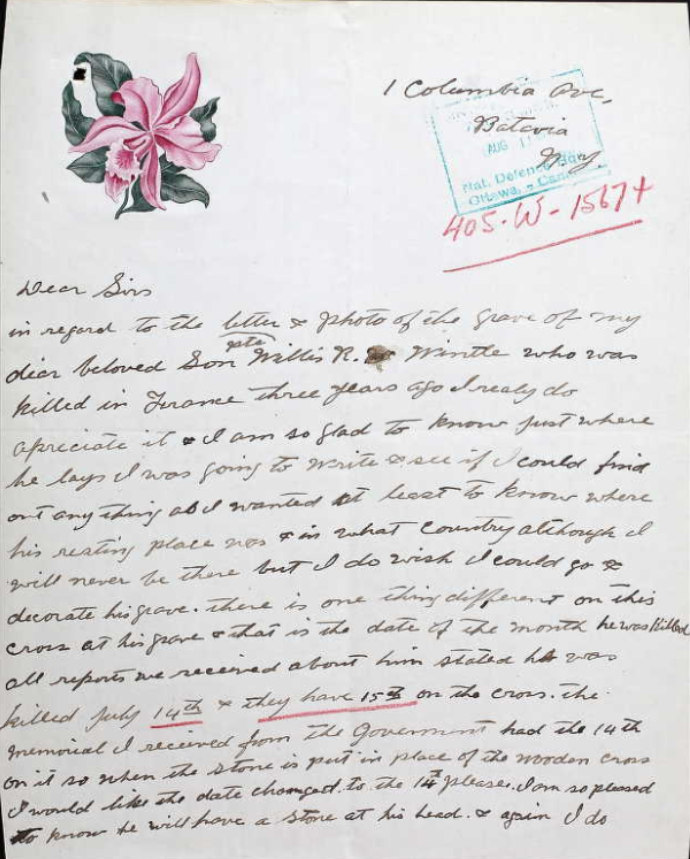 1 Columbia Ave,
Batavia
N.y.
AUG 11
Nat. Defence Hdq
Ottawa, - Can
405-W-1567+
Dear Sirs
in regard to the letter & photo of the grave of my
dear beloved Son pte Willis R. Wintle who was
killed in France three years ago I realy do
apreciate it & I am so glad to know just where
he lays I was going to write & see if I could find
out any thing as I wanted at least to know where
his resting place was & in what country although I
will never be there but I do wish I could go &
decorate his grave. there is one thing different on this
cross at his grave & that is the date of the month he was killed
all reports we received about him stated he was
killed July 14th & they have 15th on the cross. the
memorial I received from the Government had the 14th
on it so when the stone is put in place of the wooden cross
I would like the date changed to the 14th please. I am so pleased
to know he will have a stone at his head. & again I do